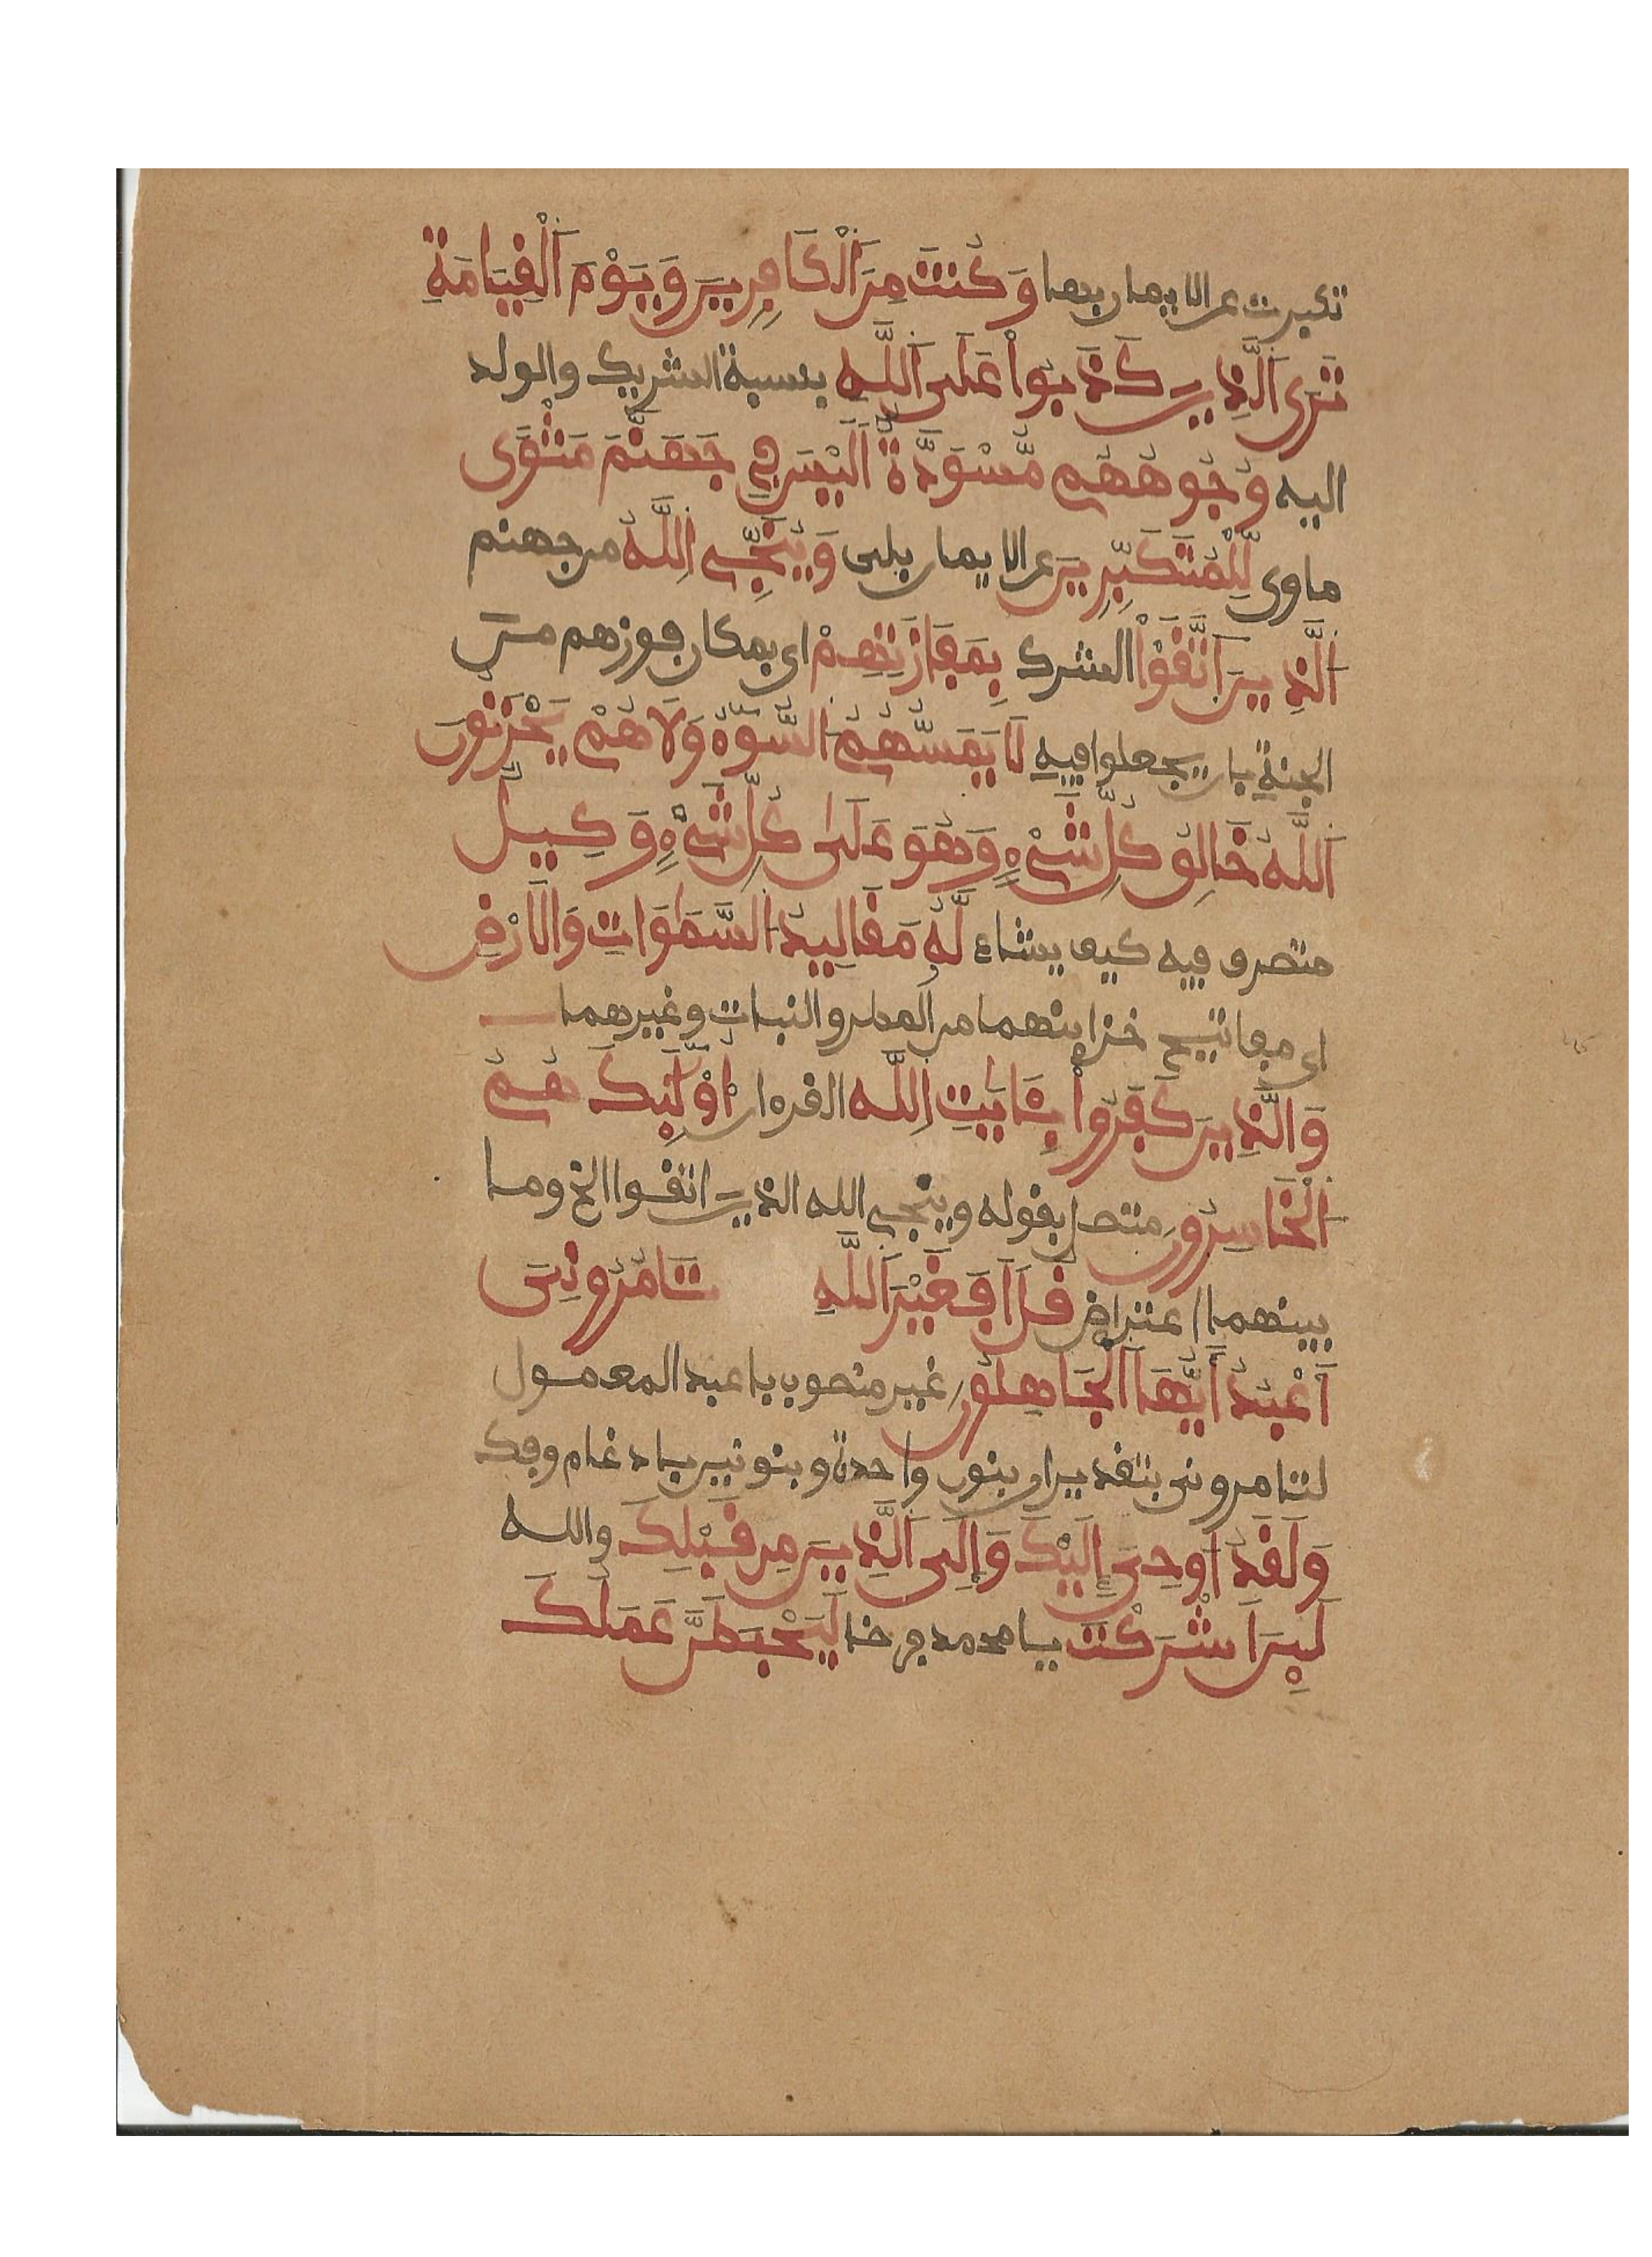 تكبرت عن الايمان بها وَكُنتَ مِنَ اَلْكَافِرِينَ وَيَوْمَ اَلْقِيَامَةِ
تَرَى اَلَّذِينَ كَذَبُواْ عَلَى اَللَّهِ بنسبة الشريك والولد
اليه وُجُوهُهُم مُّسْوَدَّةٌ اَلَيْسَ فِي جَهَنَّمَ مَثْوًى
ماوى لِّلْمُتَكَبِّرِينَ عن الايمان بلى وَيُنَجِّي اِللَّهُ من جهنم
اَلَّذِينَ اَتَّقَوْاْ الشرك بِمَفَازَتِهِمْ اي بمكان فوزهم من
الجنة بان يجعلوا فيه لَا يَمَسُّهُمُ السُّوٓءُ وَلَا هُمْ يَحْزَنُونَ
اَللَّهُ خَالِقُ كُلِّ شَيْءٍ وَهُوَ عَلَىٰ كُلِّ شَيْءٍ وَكِيلٌ
متصرف فيه كيف يشاء لَّهُ مَقَالِيدُ السَّمَٰوَاتِ وَالَارْضِ
اي مفاتيح خزاينهما من المطر والنبات وغيرهما
وَالَّذِينَ كَفَرُواْ بِـَٔايَٰتِ اِللَّهِ القرءان أُوْلَٰٓئِكَ هُمُ
اَلْخَاسِرُونَ متصل بقوله وينجي الله الذين اتقوا الخ وما
بينهما اعتراض قُلَ اَفَغَيْرَ اَللَّهِ تَامُرُونِىَ
أَعْبُدُ أَيُّهَا اَلْجَاهِلُونَ غير منصوب باعبد المعمول
لتامروني بتقدير ان بنون واحدة وبنونين بادغام وفك
وَلَقَدُ اوحِىَ إِلَيْكَ وَإِلَى اَلَّذِينَ مِن قَبْلِكَ والله
لَئِنَ اَشْرَكْتَ يا محمد فرضا لَيَحْبَطَنَّ عَمَلُكَ